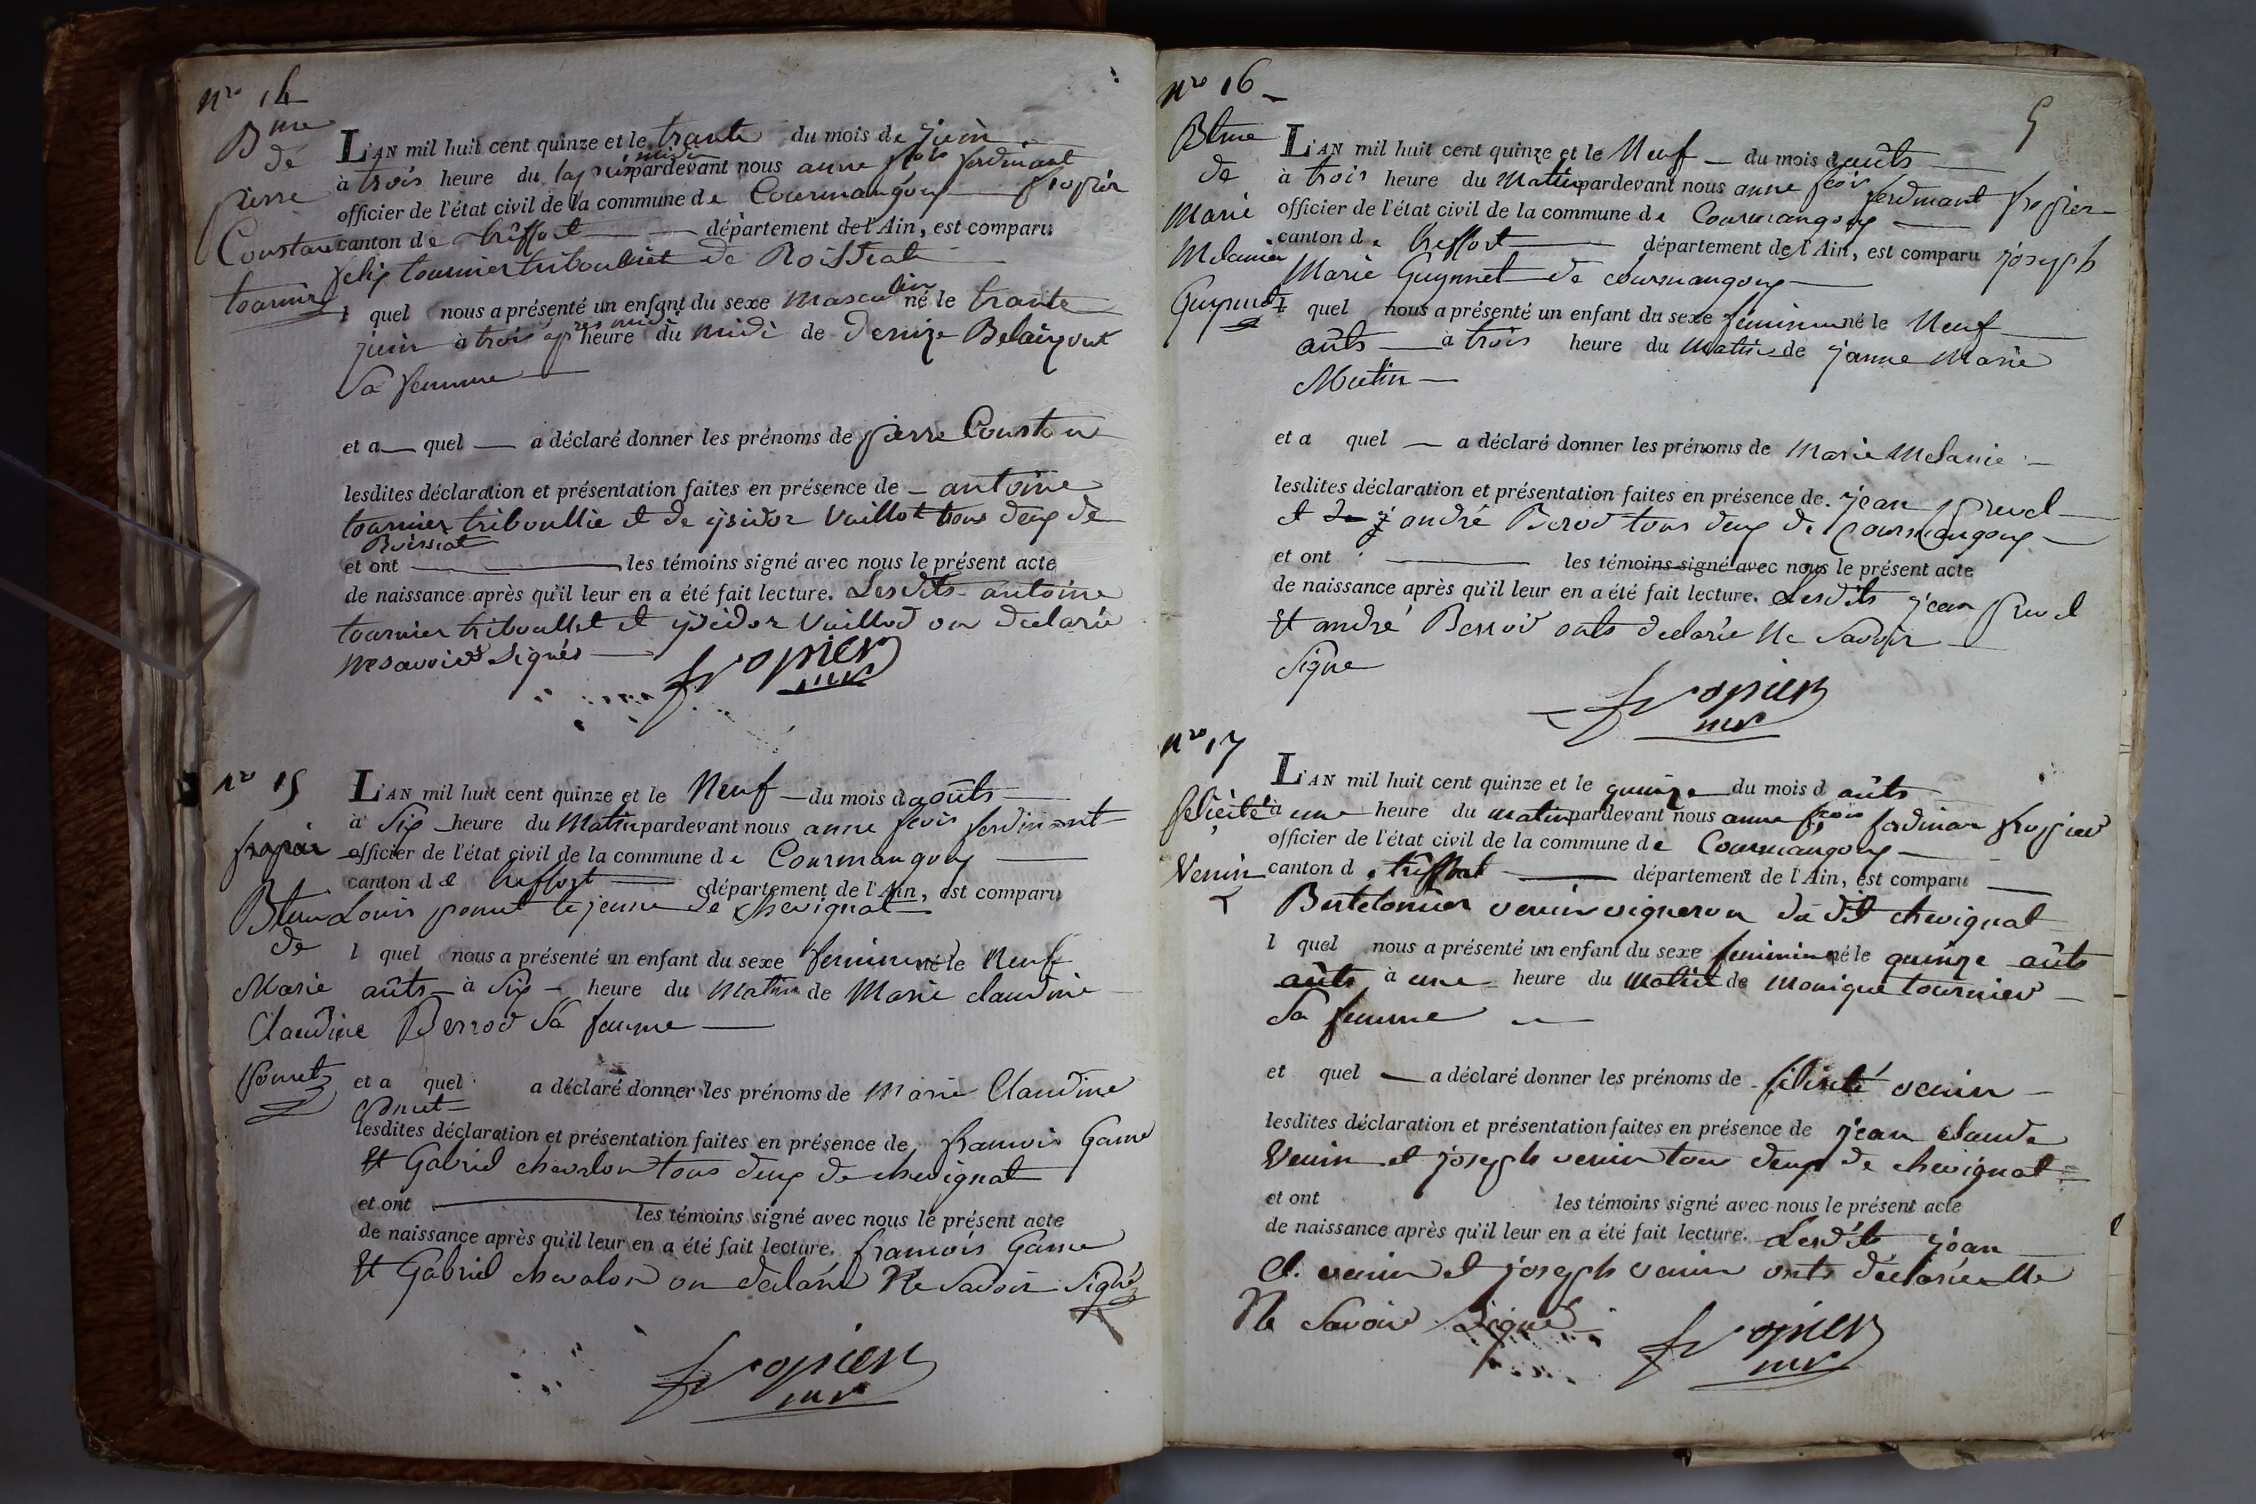 Nro 14
Bme
de
pierre
Constan
tournier
L'AN mil huit cent quinze et le trante du mois de juin
à trois heure du apres midi pardevant nous anne fcois ferdinant
fropier
officier de l'état civil de la commune de Courmangoux
canton de treffort département de l'Ain, est comparu
felix tournier triboullet de Roissiat
l quel nous a présenté un enfant du sexe masculin né le trante
juin à trois apres midi heure du midi de denize Belaizout
sa femme
et a quel a déclaré donner les prénoms de pierre Constan
lesdites déclaration et présentation faites en présence de antoine
tournier triboullie et de ysidor Vuillot tous deux de
Roissiat
et ont les témoins signé avec nous le présent acte
de naissance après qu'il leur en a été fait lecture. Lesdits antoine
tournier triboullet et ysidor Vuillod on declarie
ne savoir signés
fropier
mr
Nro 15
fropier
Bteme
de
Marie
Claudine
ponet
L'AN mil huit cent quinze et le Neuf du mois daoûts
à six heure du Matin pardevant nous anne fcois ferdinant
officier de l'état civil de la commune de Courmangoux
canton de treffort département de l'Ain, est comparu
Louis ponet le jeune de chevignat
l quel nous a présenté un enfant du sexe feminin né le Neuf
aûts à six heure du Matin de Marie claudine
Berrod sa famme
et a quel a déclaré donner les prénoms de Marie Claudine
ponet
lesdites déclaration et présentation faites en présence de francois Game
Et Gabriel chevalon tous deux de chevignat
et ont les témoins signé avec nous le présent acte
de naissance après qu'il leur en a été fait lecture. francois Game
Et Gabriel chevalon on déclarié Ne savoir signé
fropier
mr
Nro 16
5
Btme
de
Marie
Melanie
Guynnet
L'AN mil huit cent quinze et le Neuf du mois daûts
à trois heure du Matin pardevant nous anne fcois ferdinant fropier
officier de l'état civil de la commune de Courmangoux
canton de treffort département de l'Ain, est comparu joseph
Marie Guynnet de courmangoux
l quel nous a présenté un enfant du sexe féminin né le Neuf
aûts à trois heure du Matin de janne Marie
Mutin
et a quel a déclaré donner les prénoms de Marie Melanie
lesdites déclaration et présentation faites en présence de jean
et de andré Berod tous deux de Courmangoux
et ont les témoins signé avec nous le présent acte
de naissance après qu'il leur en a été fait lecture. Lesdits jean
Et andré Berrod onts declarié Ne savoir
signe
fropier
mr
Nro 17
feliçité
Venin
L'AN mil huit cent quinze et le quinze du mois d aûts
à une heure du matin pardevant nous anne fcois ferdinan fropier
officier de l'état civil de la commune de Courmangoux
canton de treffort département de l'Ain, est comparu
Bertelomier venin vigneron du dit chevignat
l quel nous a présenté un enfant du sexe feminin né le quinze aûts
aûts à une heure du matin de monique tournier
sa femme
et quel a déclaré donner les prénoms de félicité venin
lesdites déclaration et présentation faites en présence de jean claude
Venin et joseph venin tous deux de chevignat
et ont les témoins signé avec nous le présent acte
de naissance après qu'il leur en a été fait lecture. Lesdits jean
cl. venin et joseph venin onts déclarié Ne
Ne savoir signes
fropier
mr